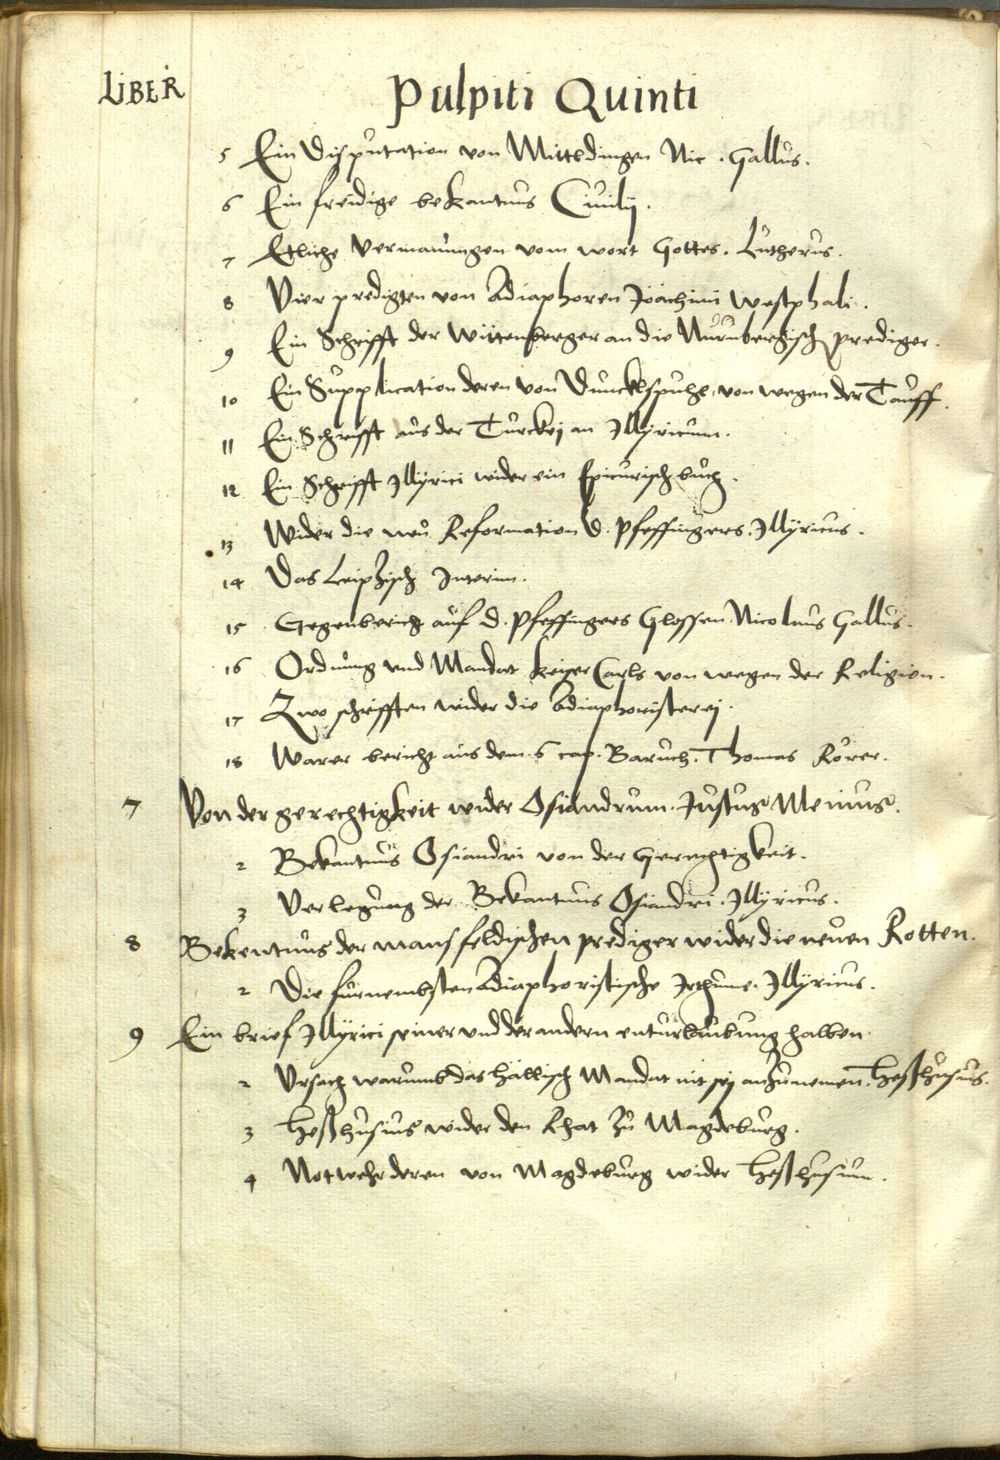 LIBER
Pulpiti Quinti
5 Ein Disputation von Mitteldingen Nic. Gallus.
6 Ein freidige bekantnus
7 Etliche Vermanungen vom wort Gottes. Lutherus.
8 Vier predigten von Adiaphoren Joachimi Westphali.
9 Ein Schrifft der Wittenberger an die Nurnbergisch prediger.
10 Ein Supplication deren von Dunckelspuhl von wegen der Tauff.
11 Ein Schrifft aus der Turckej an Illyricum.
12 Ein Schrifft Illyrici wider ein Epicurisch buch.
13 Wider die neu Reformation d. Pfeffingers. Illyricus.
14 Das Leipzisch Interim.
15 Gegenbericht auf d. Pfeffingers Glossen Nicolaus Gallus.
16 Ordnung und Mandat Keiser Carls von wegen der Religion.
17 Zwo schrifften wider die Adiaphoristerej.
18 Warer bericht aus dem 6 cap. Baruch. Thomas Rörer.
7 Von der gerechtigkeit wider Osiandrum. Justus Menius.
2 Bekantnus Osiandri von der Gerechtigkeit.
3 Verlegung der Bekantnus Osiandri. Illyricus.
8 Bekentnus der mansfeldischen prediger wider die neuen Rotten.
2 Die furnembsten Adiaphoristische Irthume. Illyricus.
9 Ein brief Illyrici seiner und der andern enturlaubung halben
2 Ursach warumb das Hällisch Mandat nit sej anzunemen. Heßhusius.
3 Heßhusius wider den Rhat zu Magdeburg.
4 Notwehr deren von Magdeburg wider Heßhusium.